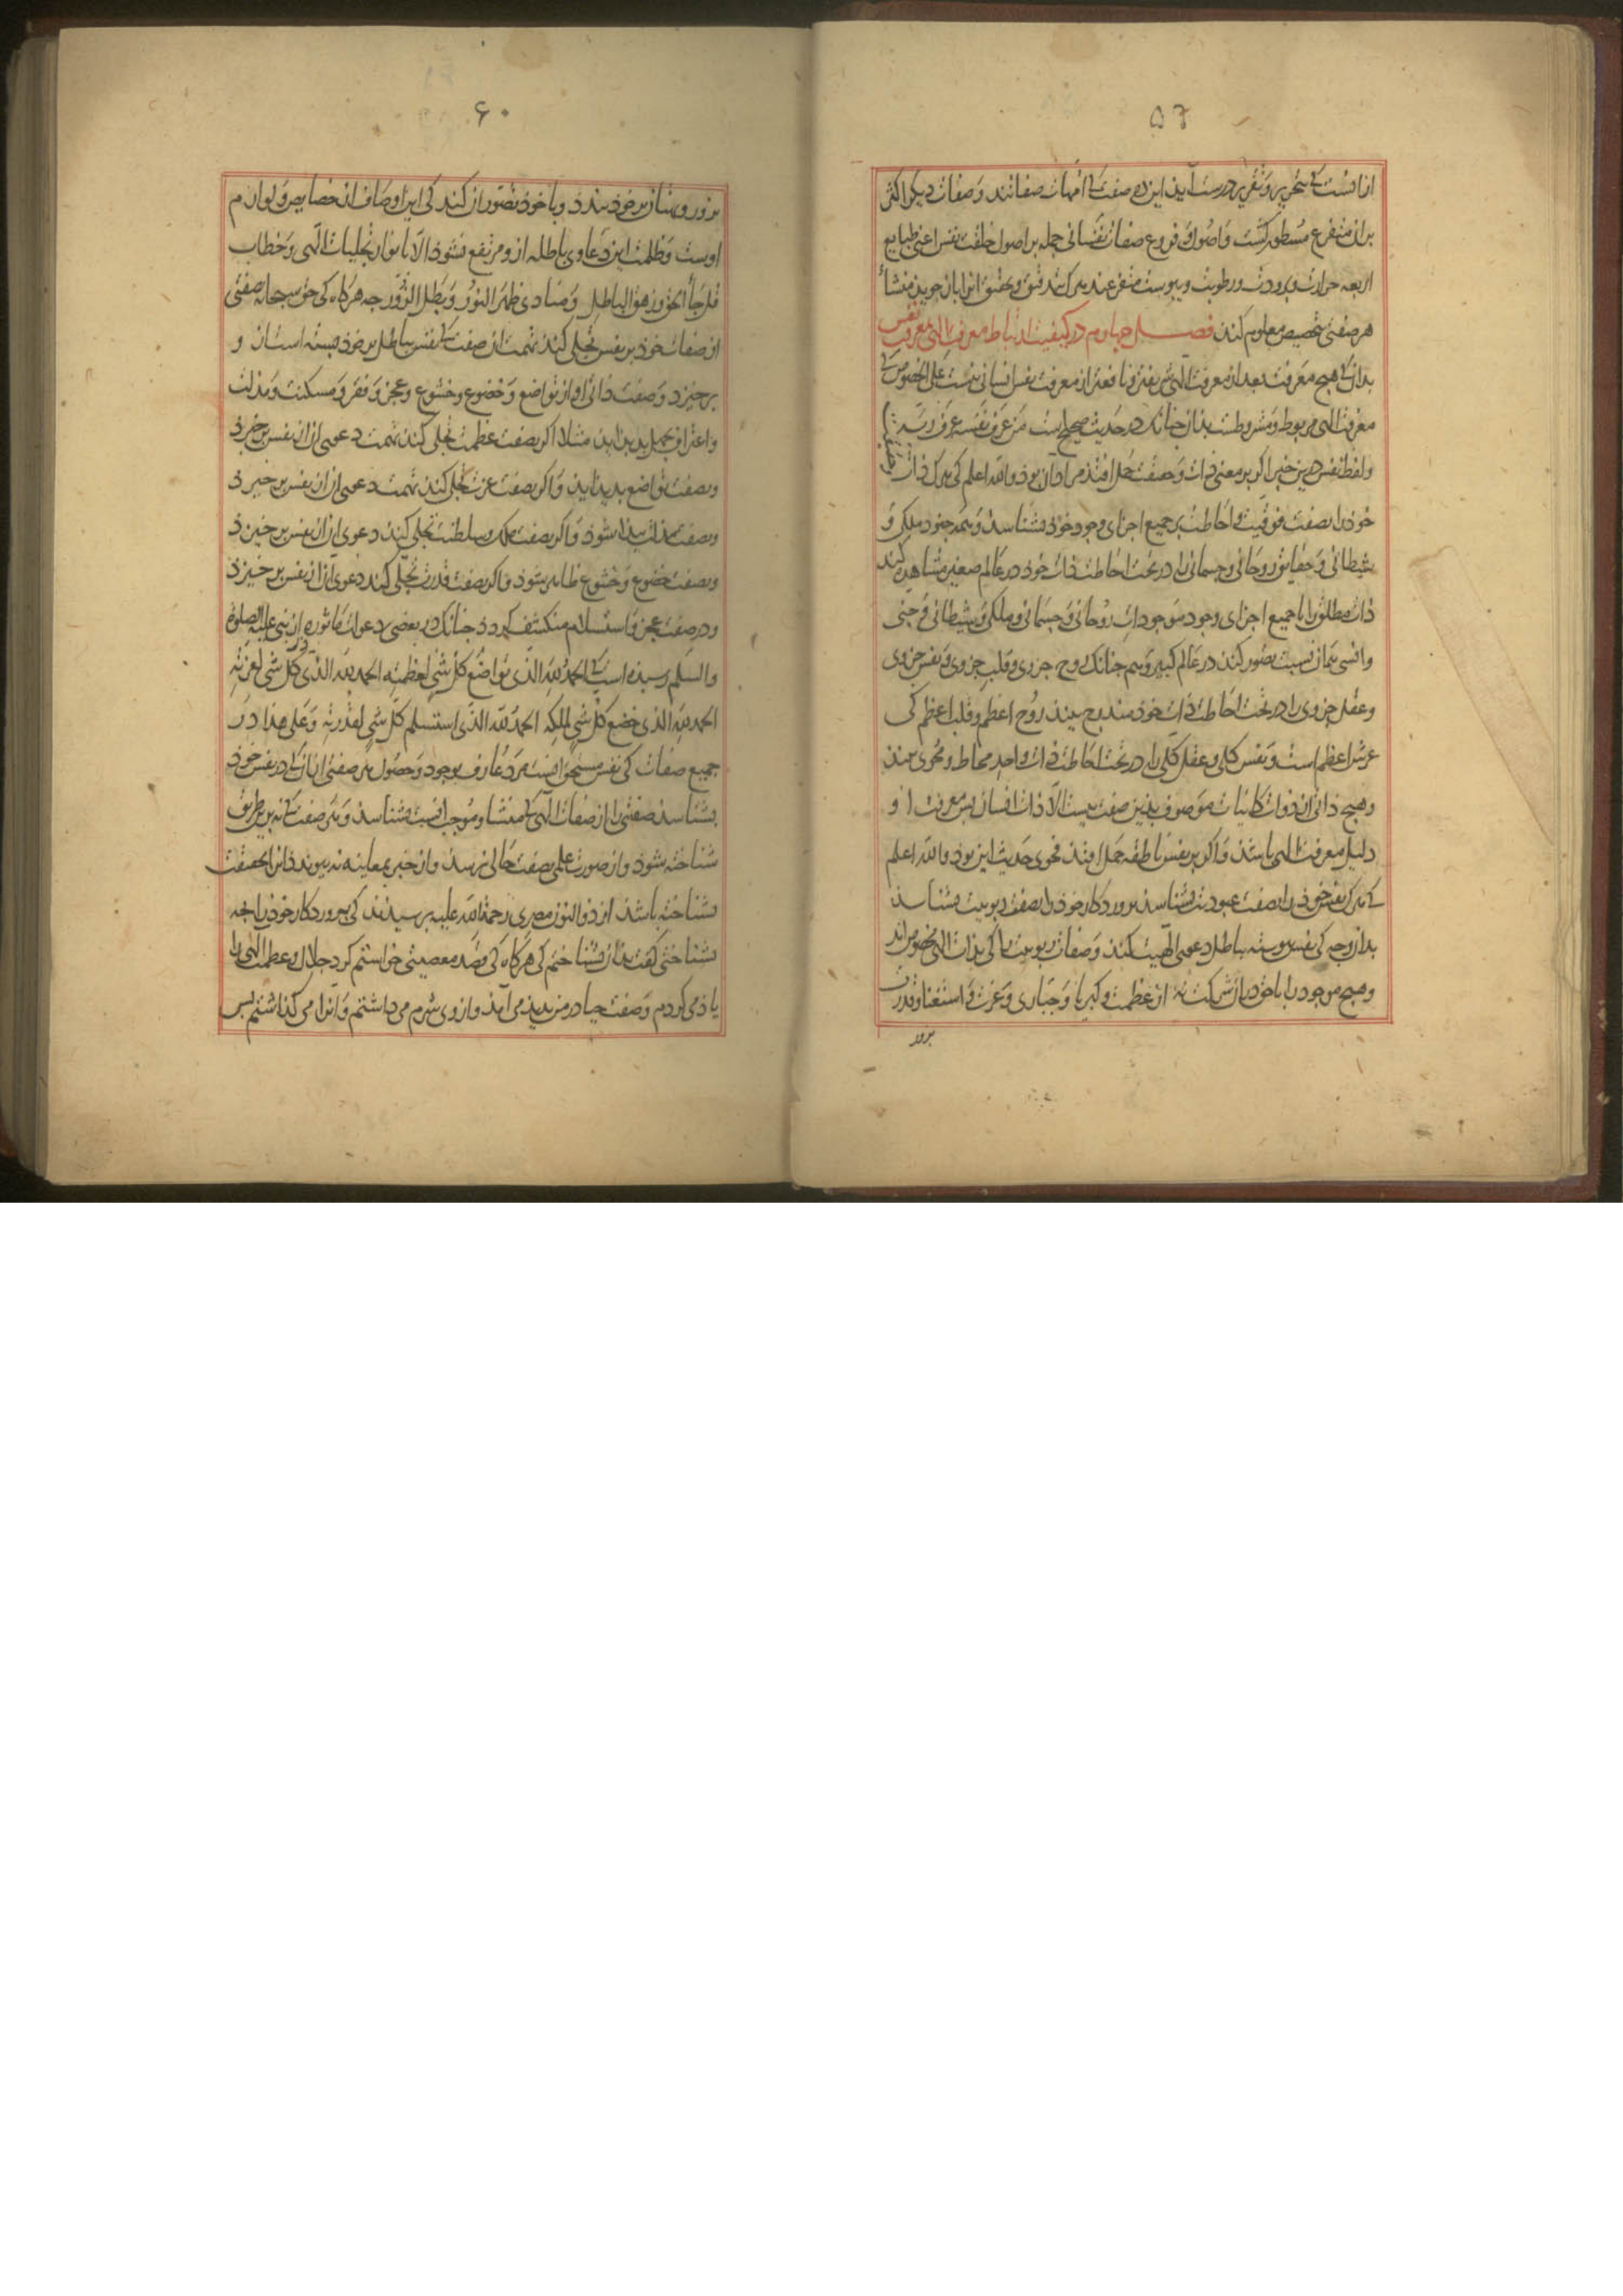 ۵۶
از آنست که بتحریر و تقریر درست آید این ده صفت که امهات صفاتند و صفات دیکر اکثر
بران متفرع مسطور کشت و اصول و فروع صفات نفسانی جمله بر اصول خلقت نفس اعنی طبایع
اربعه حرارت و برودت و رطوبت و یبوست متفرع‌اند هرک تدقیق و تحقیق انرا باز جوید منشأ
هر صفتی بتخصیص معلوم کند فصــل چهارم در کیفیت ارتباط معرفت الهی بمعرفت نفس
بدان که هیچ معرفت بعد از معرفت الهی شریفتر و نافعتر از معرفت نفس انسانی نیست علی الخصوص که
معرفت الهی مربوط و مشروطست بدان چنانک در حدیث صحیح است من عرف نفسه عرف ربه
و لفظ نفس درین خبر اکر بر معنی ذات و حقیقت حمل افتد مراد آن بود و الله اعلم کی هرک ذات
خود را بصفت فوقیت و احاطت بر جمیع اجزای وجود خود بشناسد و همه جنود ملکی و
شیطانی و حقایق روحانی و جسمانی را در تحت احاطت ذات خود در عالم صغیر مشاهده کند
ذات مطلق را با جمیع اجزای وجود موجودات روحانی و جسمانی و ملکی و شیطانی و جنی
و انسی همان نسبت تصور کند در عالم کبیر و هم چنانک روح جزوی و قلب جزوی و نفس جزوی
و عقل جزوی را در تحت احاطت ذات خود مندرج بیند روح اعظم و قلب اعظم کی
عرش اعظم است و نفس کلی و عقل کلی را در تحت احاطت ذات واحد محاط و محوی بیند
و هیچ ذاتی از ذوات کاینات موصوف بذین صفت نیست الا ذات انسان پس معرفت او
دلیل معرفت الهی باشد و اکر بر نفس ناطقه حمل افتد فحوی حدیث این بود و الله اعلم
که هرک نفس خود را بصفت عبودیت بشناسد پروردکار خود را بصفت ربوبیت بشناسد
بدان وجه کی نفس پیوسته بباطل دعوی الهیت کند و صفات ربوبیت را کی بذات الهی مخصوص‌اند
و هیچ موجود را با خود دران شرکت نه از عظمت و کبریا و جباری و عزت و استغنا و قدرت
بزور
۶۰
بزور و بهتان بر خود بندد و با خود تصور آن کند کی این اوصاف از خصایص و لوازم
اوست و ظلمت این دعاوی باطله ازو مرتفع نشود الا بانوار تجلیات الهی و خطاب
قل جاء الحق و زهق الباطل و منادی ظهر النور و بطل الزور چه هرکاه کی حق سبحانه بصفتی
از صفات خود بر نفس تجلی کند تهمت ان صفت که نفس بباطل بر خود بسته است ازو
برخیزد و صفت ذاتی او از تواضع و خضوع و خشوع و عجز و فقر و مسکنت و مذلت
و اعتراف بجهل پدید اید مثلا اکر بصفت عظمت تجلی کند تهمت دعوی آن از نفس برخیزد
و بصفت تواضع پدید آید و اکر بصفت عزت تجلی کند تهمت دعوی آن از نفس برخیزد
و بصفت مذلت پیدا شود و اکر بصفت ملک و سلطنت تجلی کند دعوی آن از نفس برخیزد
و بصفت خضوع و خشوع ظاهر شود و اکر بصفت قدرت تجلی کند دعوی آن از نفس برخیزد
و در صفت عجز و استسلام منکشف کردد چنانک در بعضی دعوات ماثوره از نبی علیه الصلوة
و السلم رسیده است که الحمد لله الذی تواضع کل شی لعظمته الحمد لله الذی ذل کل شی لعزته
الحمد لله الذی خضع کل شی لملکه الحمد لله الذی استسلم کل شی لقدرته و علی هذا در
جمیع صفات کی نفس مستحق آنست مرد عارف بوجود و حصول هر صفتی از آن که در نفس خود
بشناسد صفتی را از صفات الهی که منشا و موجب آنست بشناسد و هر صفت که نه برین طریق
شناخته شود و از صورت علمی بصفت حالی نرسد و از خبر بمعاینه نه پیوندد انرا بحقیقت
نشناخته باشد از ذو النون مصری رحمة الله علیه پرسیدند کی پروردکار خود را بچه
بشناختی کفت بدان بشناختم کی هرکاه کی قصد معصیتی خواستم کرد جلال و عظمت الهی را
یاد می کردم و صفت حیا در من پدید می آمد و از وی شرم می داشتم و آنرا می کذاشتم پس